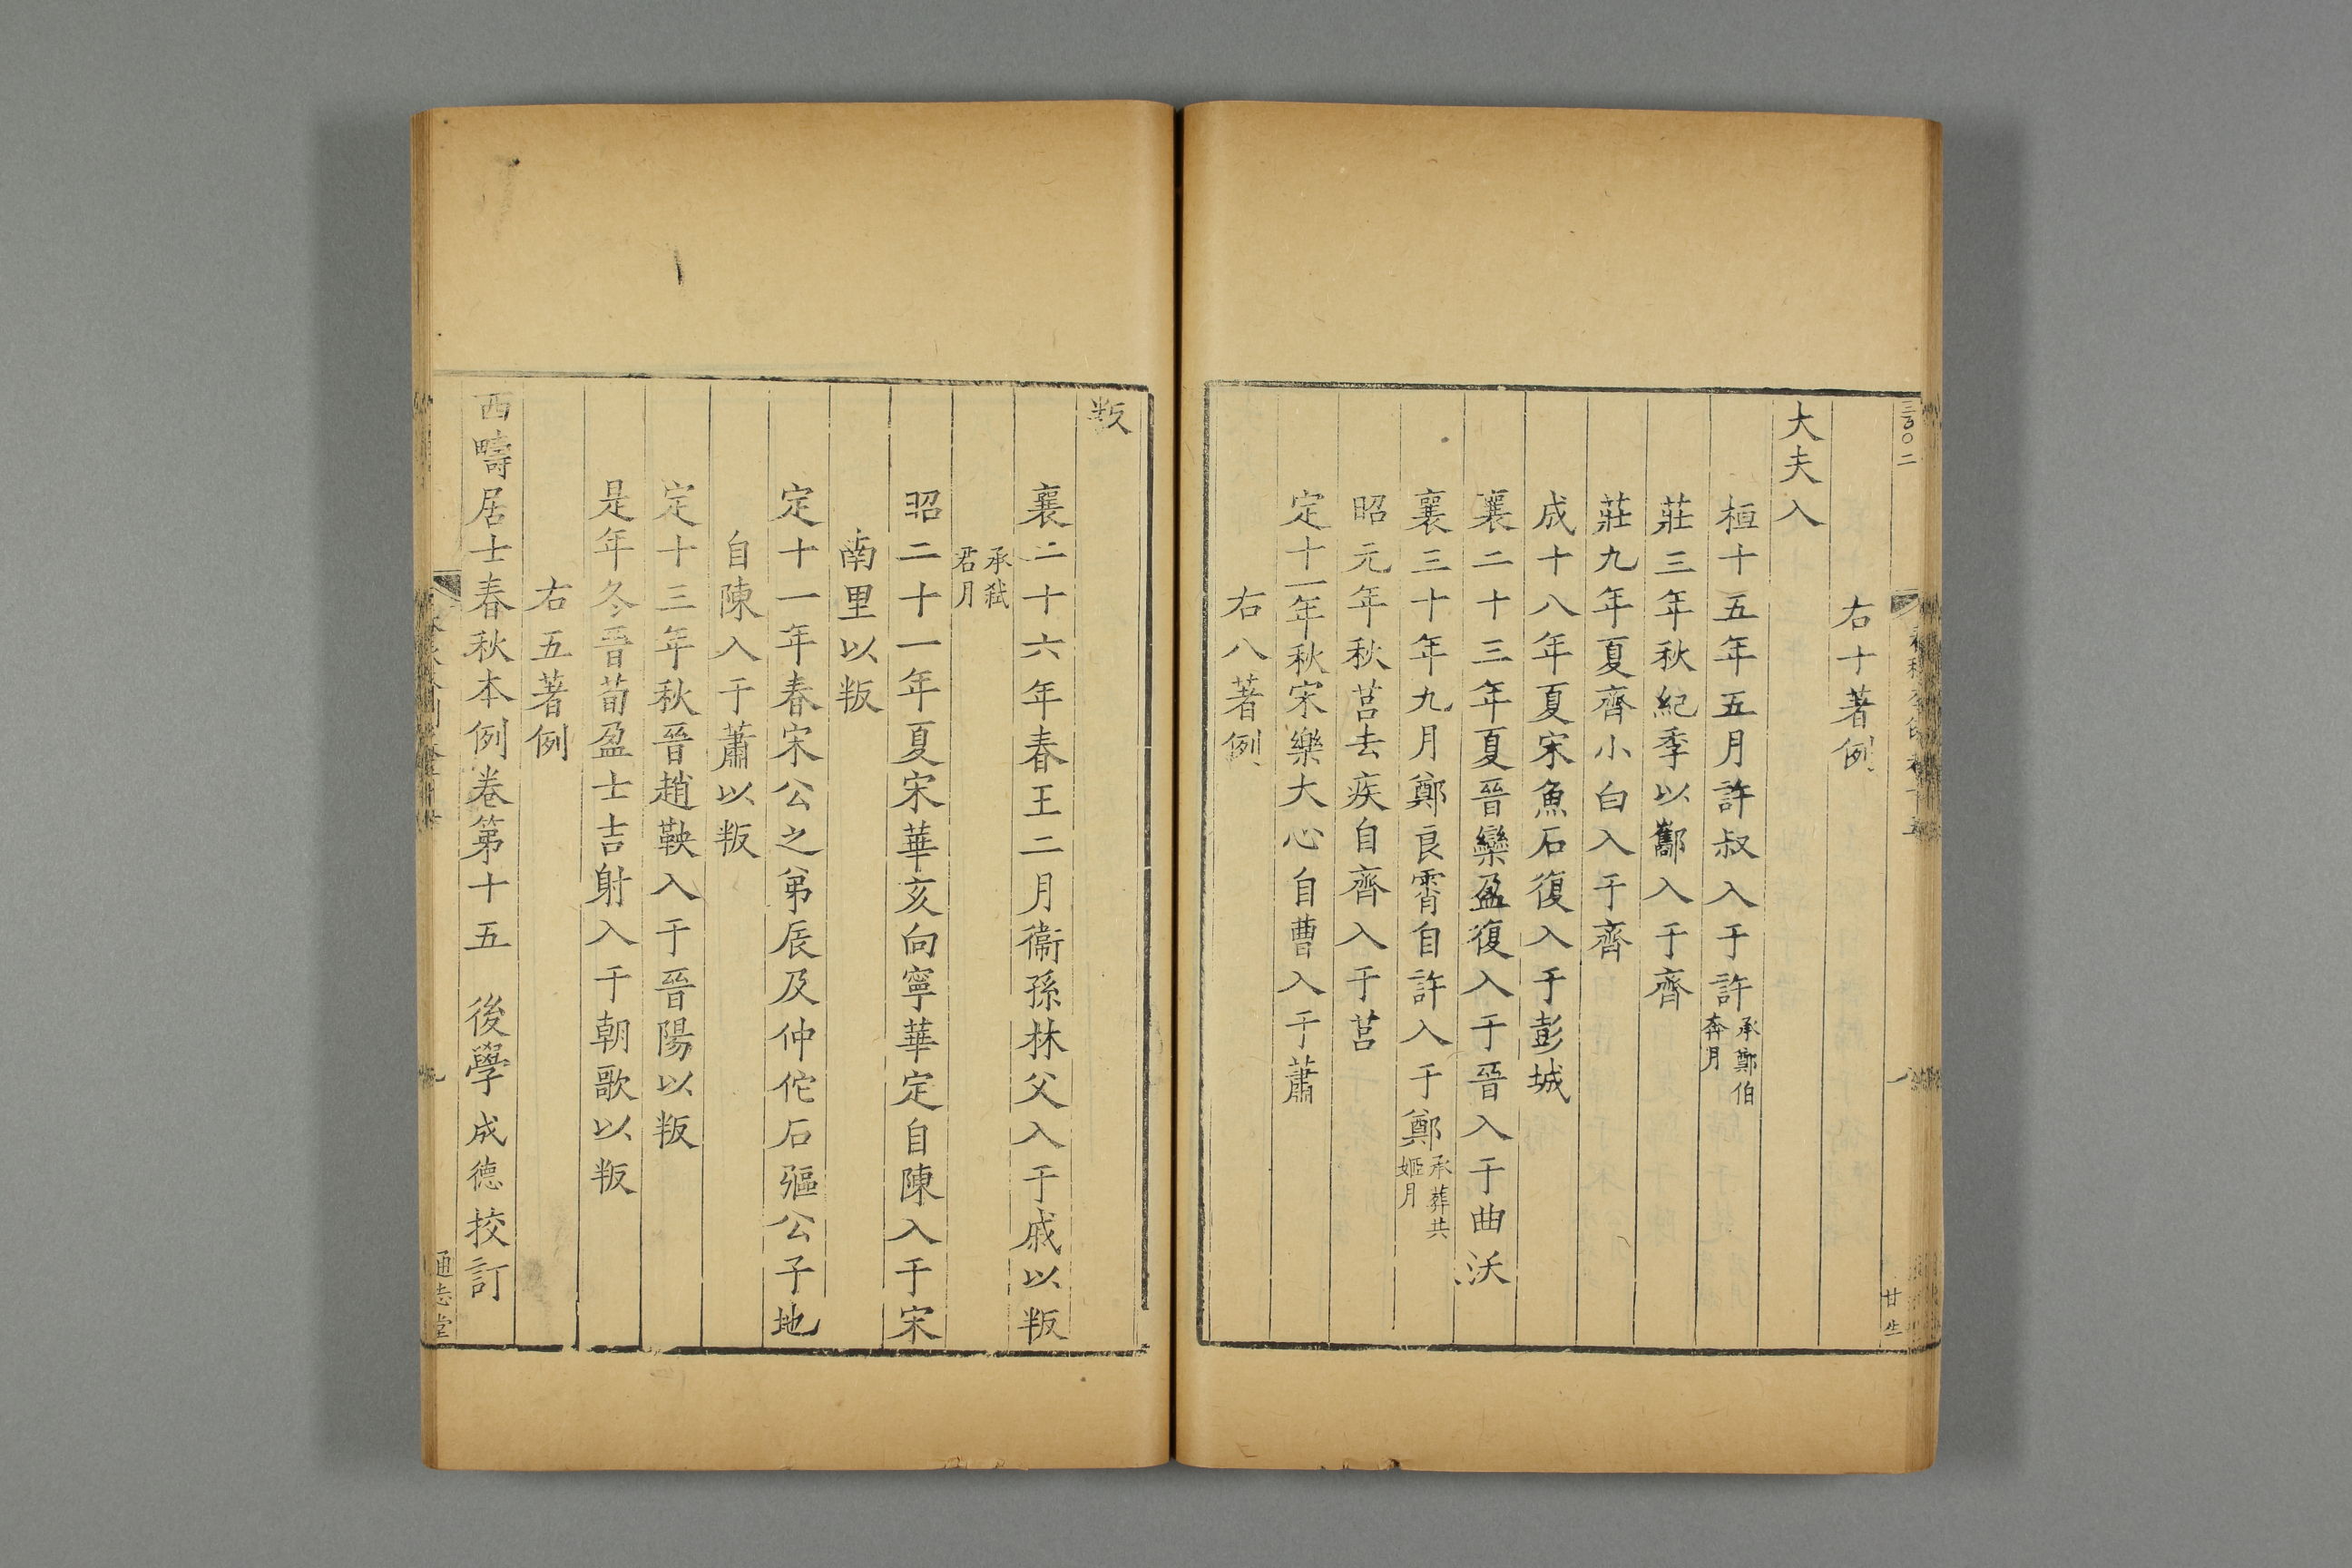 右十著例
大夫入
桓十五年五月許叔入于許承鄭伯奔月
莊三年秋紀季以酅入于齊
莊九年夏齊小白入于齊
成十八年夏宋魚石復入于彭城
襄二十三年夏晉欒盈復入于晉入于曲沃
襄三十年九月鄭良霄自許入于鄭承葬共姬月
昭元年秋莒去疾自齊入于莒
定十一年秋宋樂大心自曹入于蕭
右八著例
甘生
八
叛
襄二十六年春王二月衞孫林父入于戚以叛
承弒君月
昭二十一年夏宋華亥向寧華定自陳入于宋
南里以叛
定十一年春宋公之弟辰及仲佗石彄公子地
自陳入于蕭以叛
定十三年秋晉趙鞅入于晉陽以叛
是年冬晉荀盈士吉射入于朝歌以叛
右五著例
西疇居士春秋本例卷第十五 後學成德挍訂
通志堂